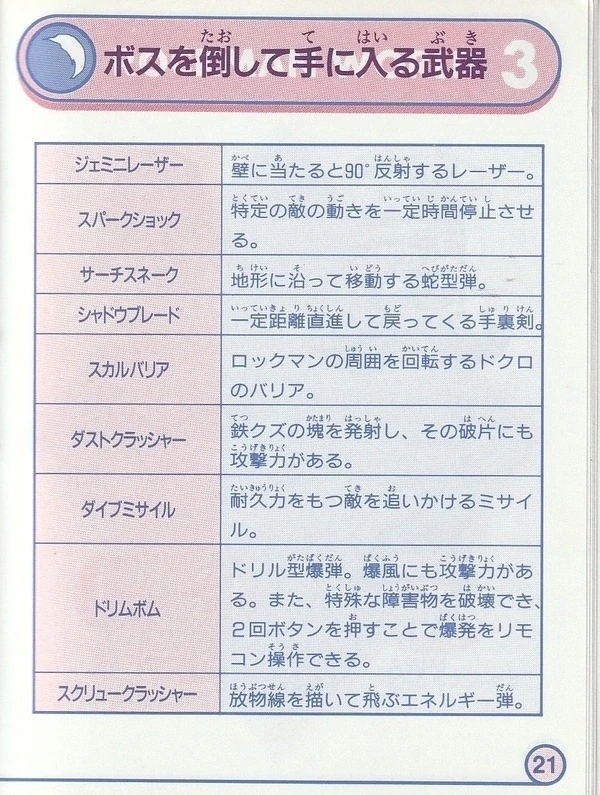 ボスを倒して手に入る武器 3
ジェミニレーザー
壁に当たると90°反射するレーザー。
スパークショック
特定の敵の動きを一定時間停止させ
る。
サーチスネーク
地形に沿って移動する蛇型弾。
シャドウブレード
一定距離直進して戻ってくる手裏剣。
スカルバリア
ロックマンの周囲を回転するドクロ
のバリア。
ダストクラッシャー
鉄クズの塊を発射し、その破片にも
攻撃力がある。
ダイブミサイル
耐久力をもつ敵を追いかけるミサイ
ル。
ドリムボム
ドリル型爆弾。爆風にも攻撃力があ
る。また、特殊な障害物を破壊でき、
2回ボタンを押すことで爆発をリモ
コン操作できる。
スクリュークラッシャー
放物線を描いて飛ぶエネルギー弾。
21